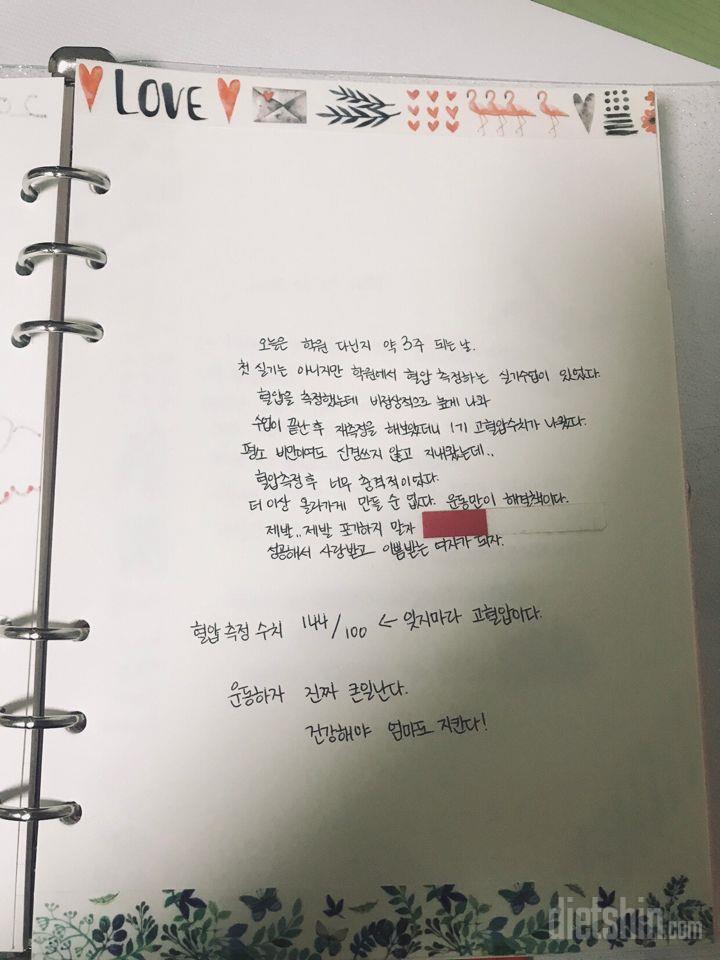 LOVE
오늘은 학원 다닌지 약 3주 되는 날.
첫 실기는 아니지만 학원에서 혈압 측정하는 실기수업이 있었다.
혈압을 측정했는데 비정상적으로 높게 나와
수업이 끝난 후 재측정을 해보았더니 1기 고혈압수치가 나왔다.
평소 비만이여도 신경쓰지 않고 지내왔는데..
혈압측정 후 너무 충격적이었다.
더 이상 올라가게 만들 순 없다. 운동만이 해결책이다.
제발.. 제발 포기하지 말자
성공해서 사랑받고 이쁨받는 여자가 되자.
혈압 측정 수치 144/100 ← 잊지마라 고혈압이다.
운동하자 진짜 큰일난다.
건강해야 엄마도 지킨다!
dietshin.com